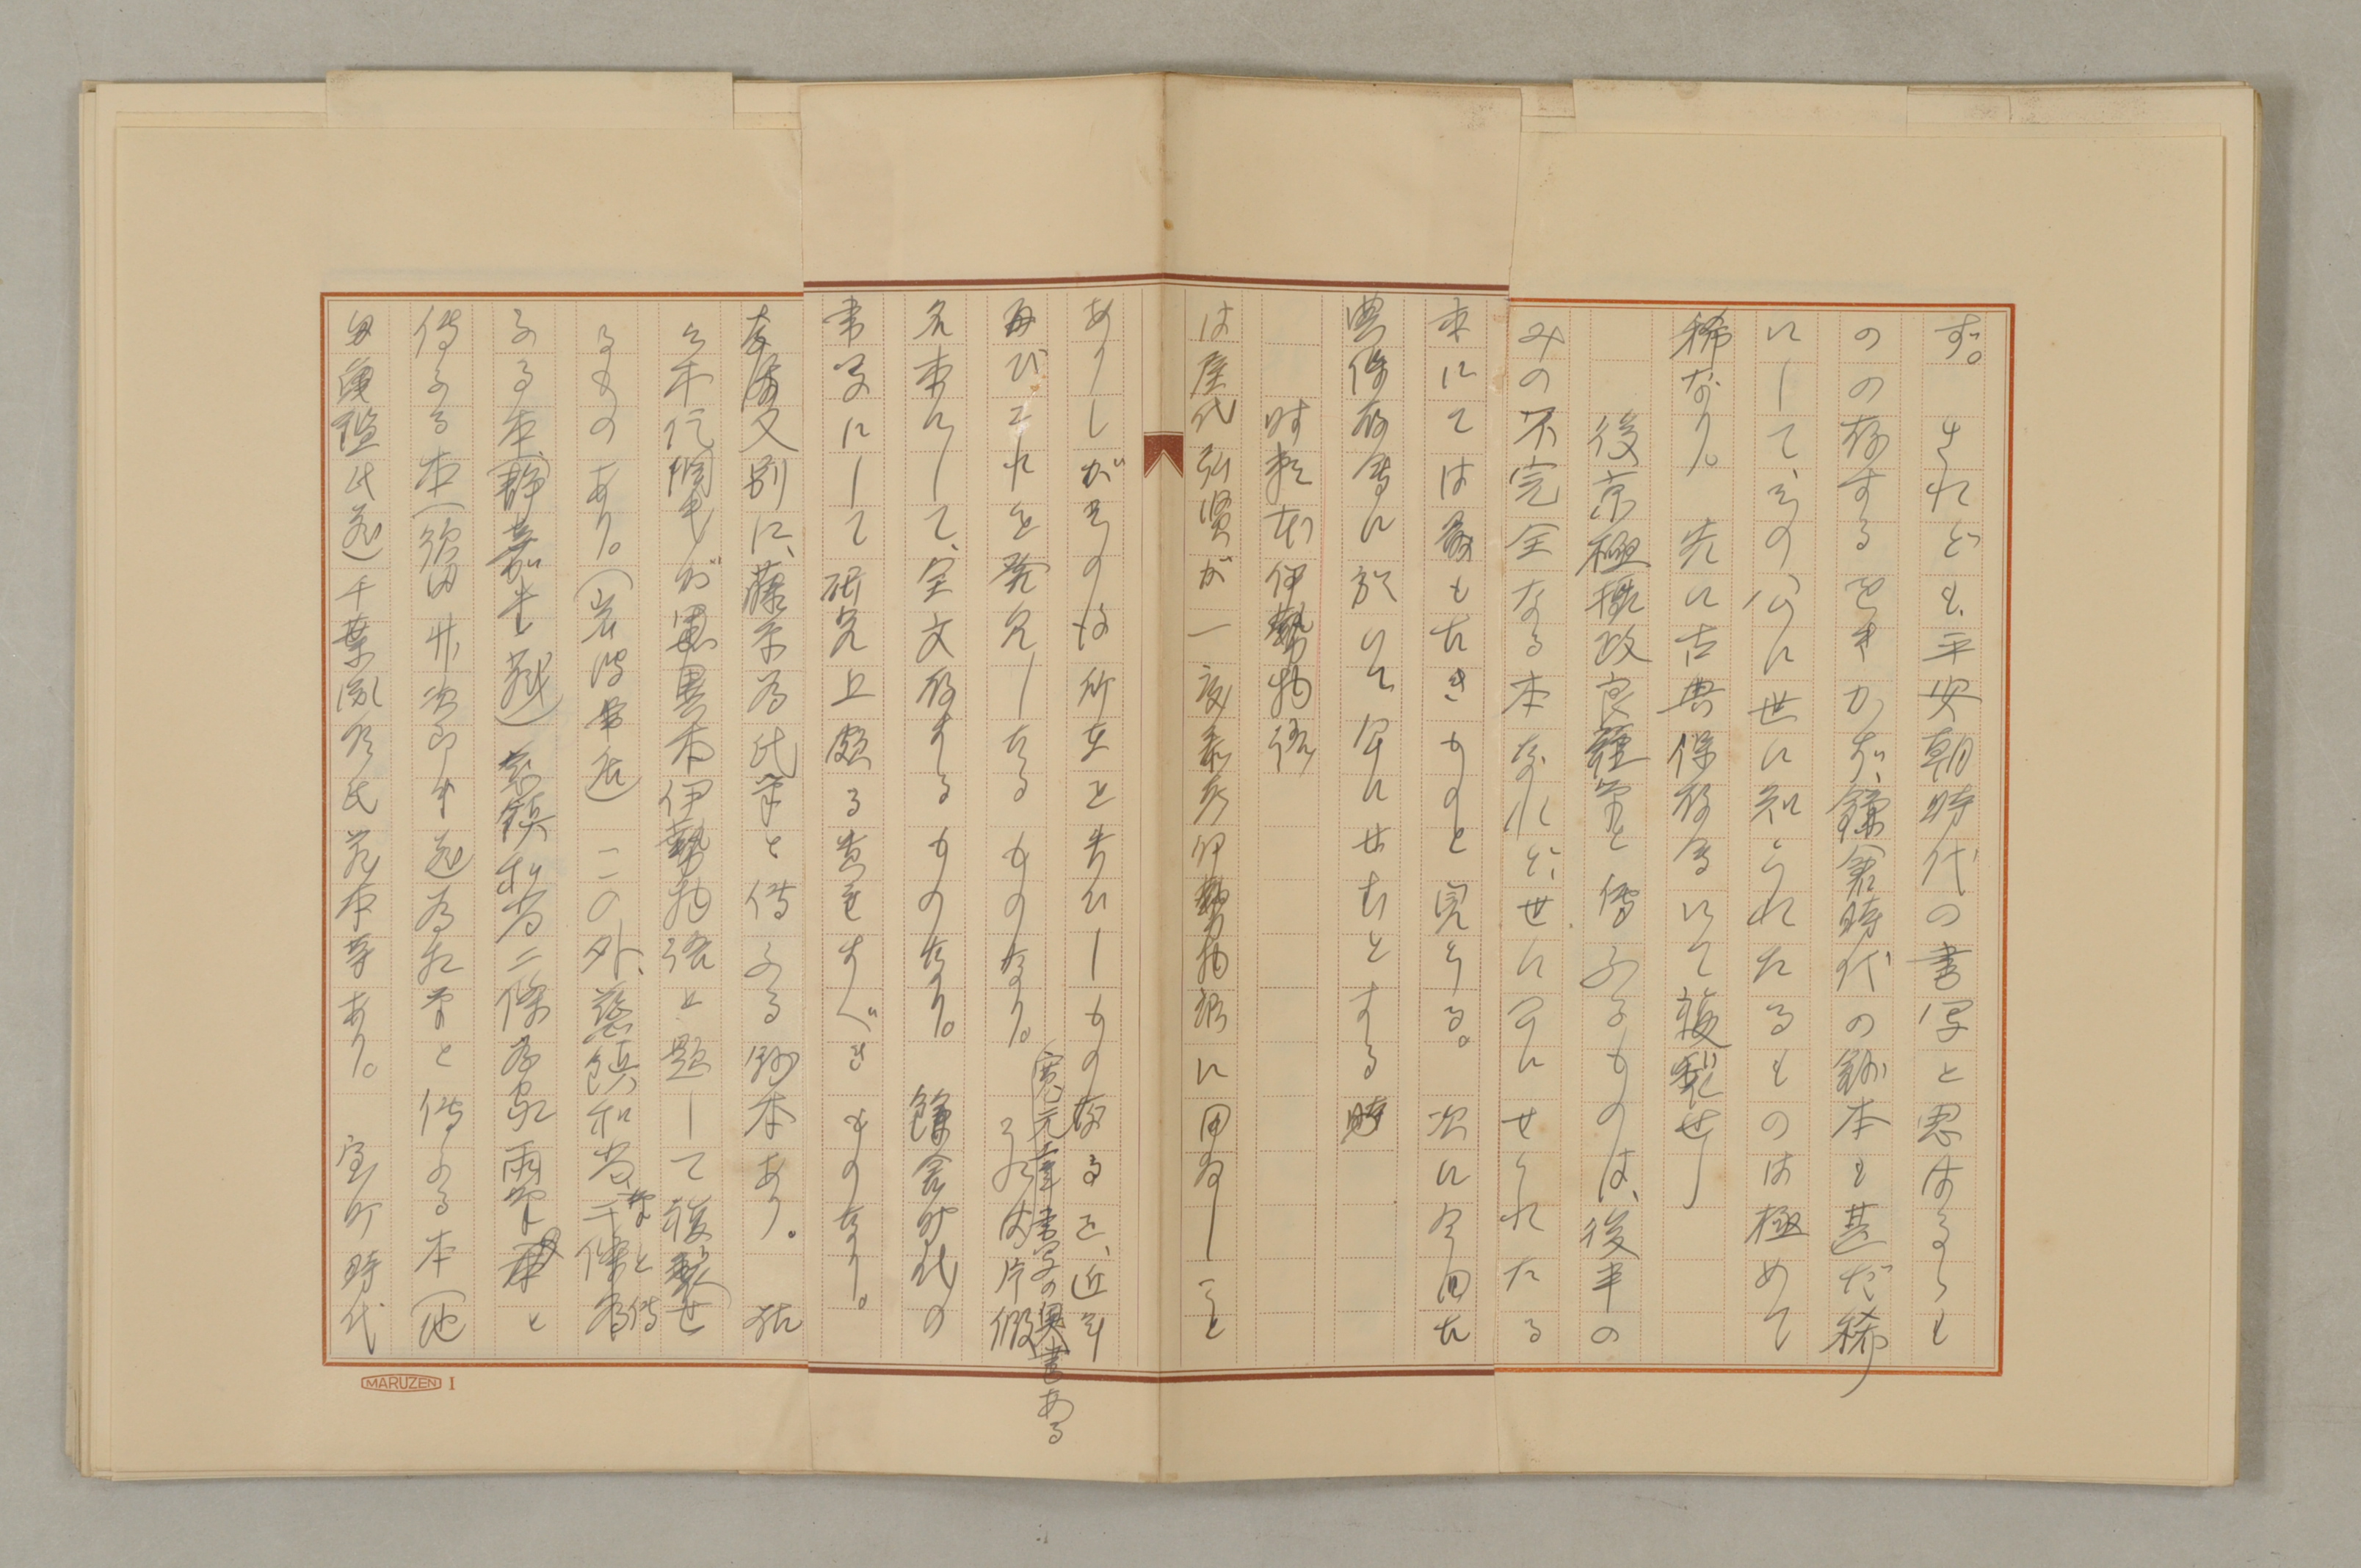 ず。　されども、平安朝時代の書写と思はるゝも
のの存するをきかず、鎌倉時代の鈔本も甚だ稀
にして、その公に世に知られたるものは極めて
稀なり。　先に古典保存会にて複製せし
後京極摂政良経筆と傳ふるものは、後半の
みの不完全なる本なれど、世に公にせられたる
本にては最も古きものと見らる。　次に今回古
典保存会に於いて公にせむとする時
時頼本伊勢物語
は屋代弘賢が一度参考伊勢物語に用ゐしこと
ありしがその後所在を失ひしもの なるを、近年
再びこれを発見したるものなり。　 は片假
寛元 書写の奥書ある
名本にして、全文存するものなり。　鎌倉時代の
書写にして研究上頗る貴重すべきものなり。
なほ又別に、藤原為氏筆と傳ふる鈔本あり。
本 が異本伊勢物語と題して複製せ
るものあり。(岩波 )この外、慈鎮和尚
筆と傳
ふる本(静嘉堂蔵)慈鎮和尚二條為氏両筆と
傳ふる本( 氏 )為相筆と傳ふる本(池
田亀鑑氏 )千葉胤明氏 本等あり。　室町時代
MARUZEN I